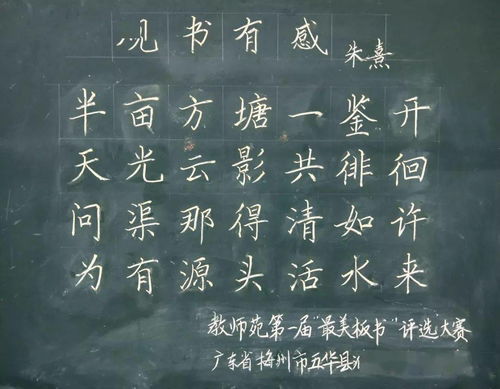 观书有感
朱熹
半亩方塘一鉴开
天光云影共徘徊
问渠那得清如许
为有源头活水来
教师苑第一届“最美板书”评选大赛
广东省梅州市五华县